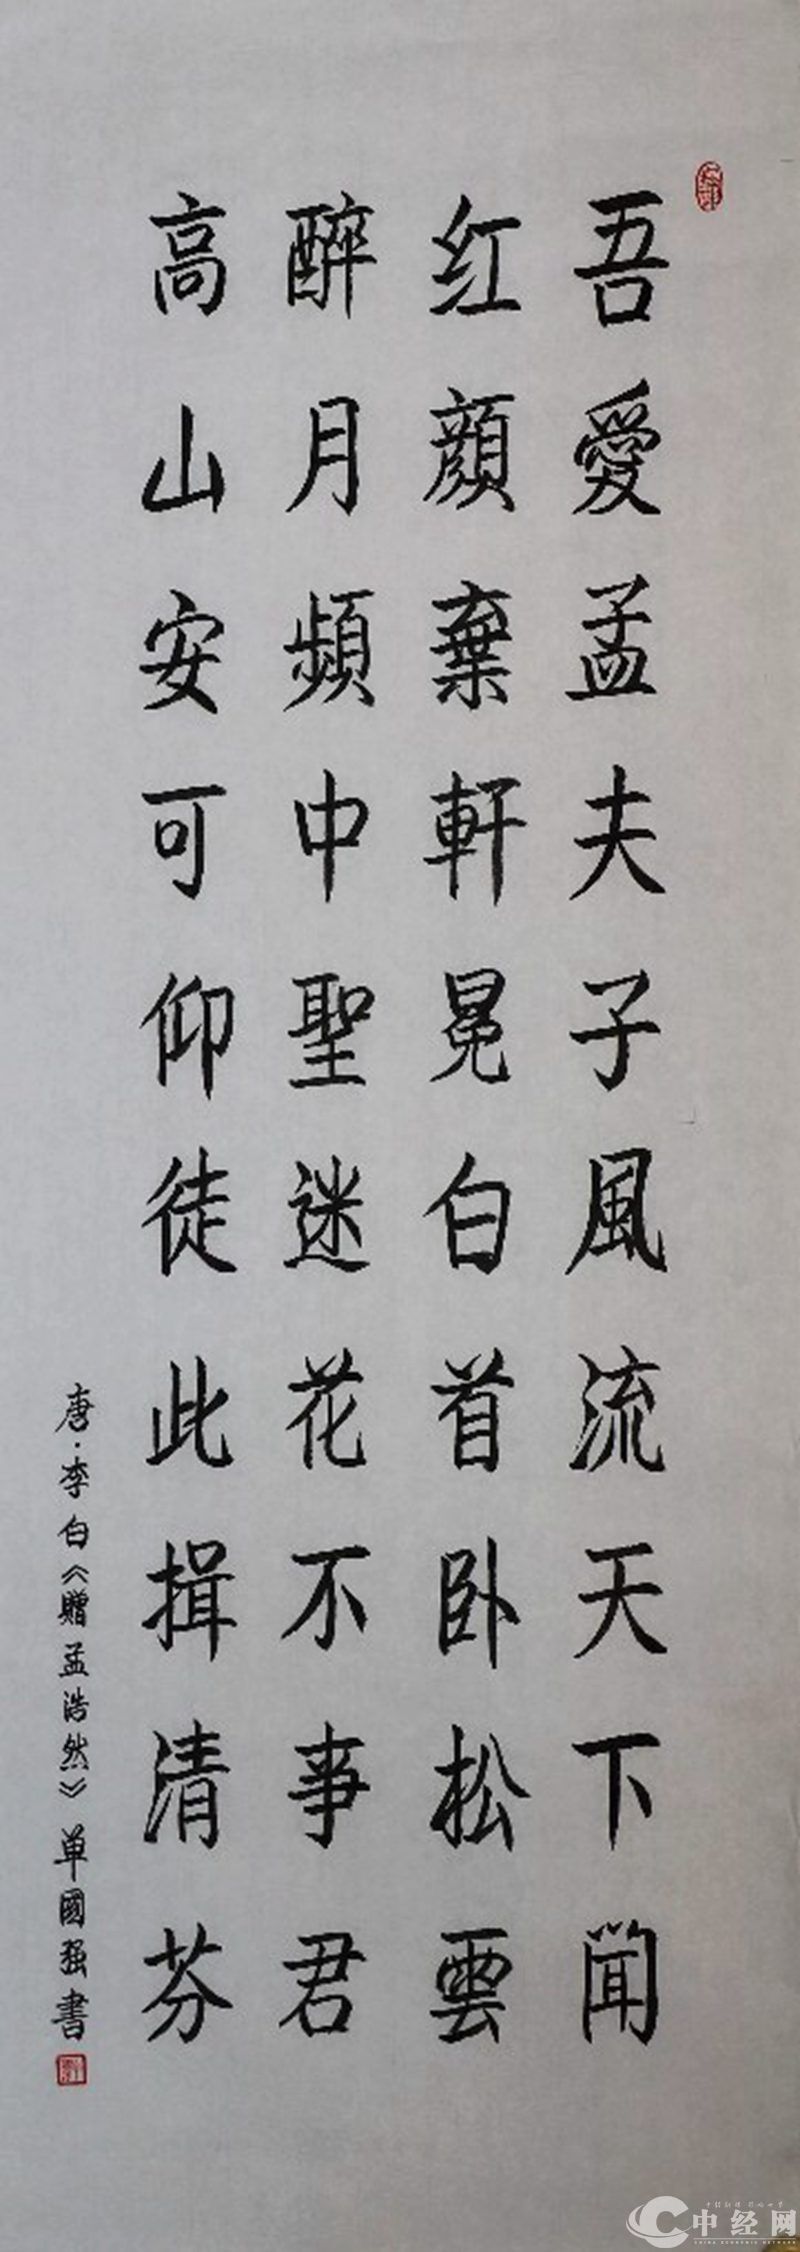 吾愛孟夫子風流天下聞
红顔棄軒冕白首卧松雲
醉月頻中聖迷花不事君
高山安可仰徒此揖清芬
唐·李白《贈孟浩然》单國强書
中经网
CHINA ECONOMIC NETWORK